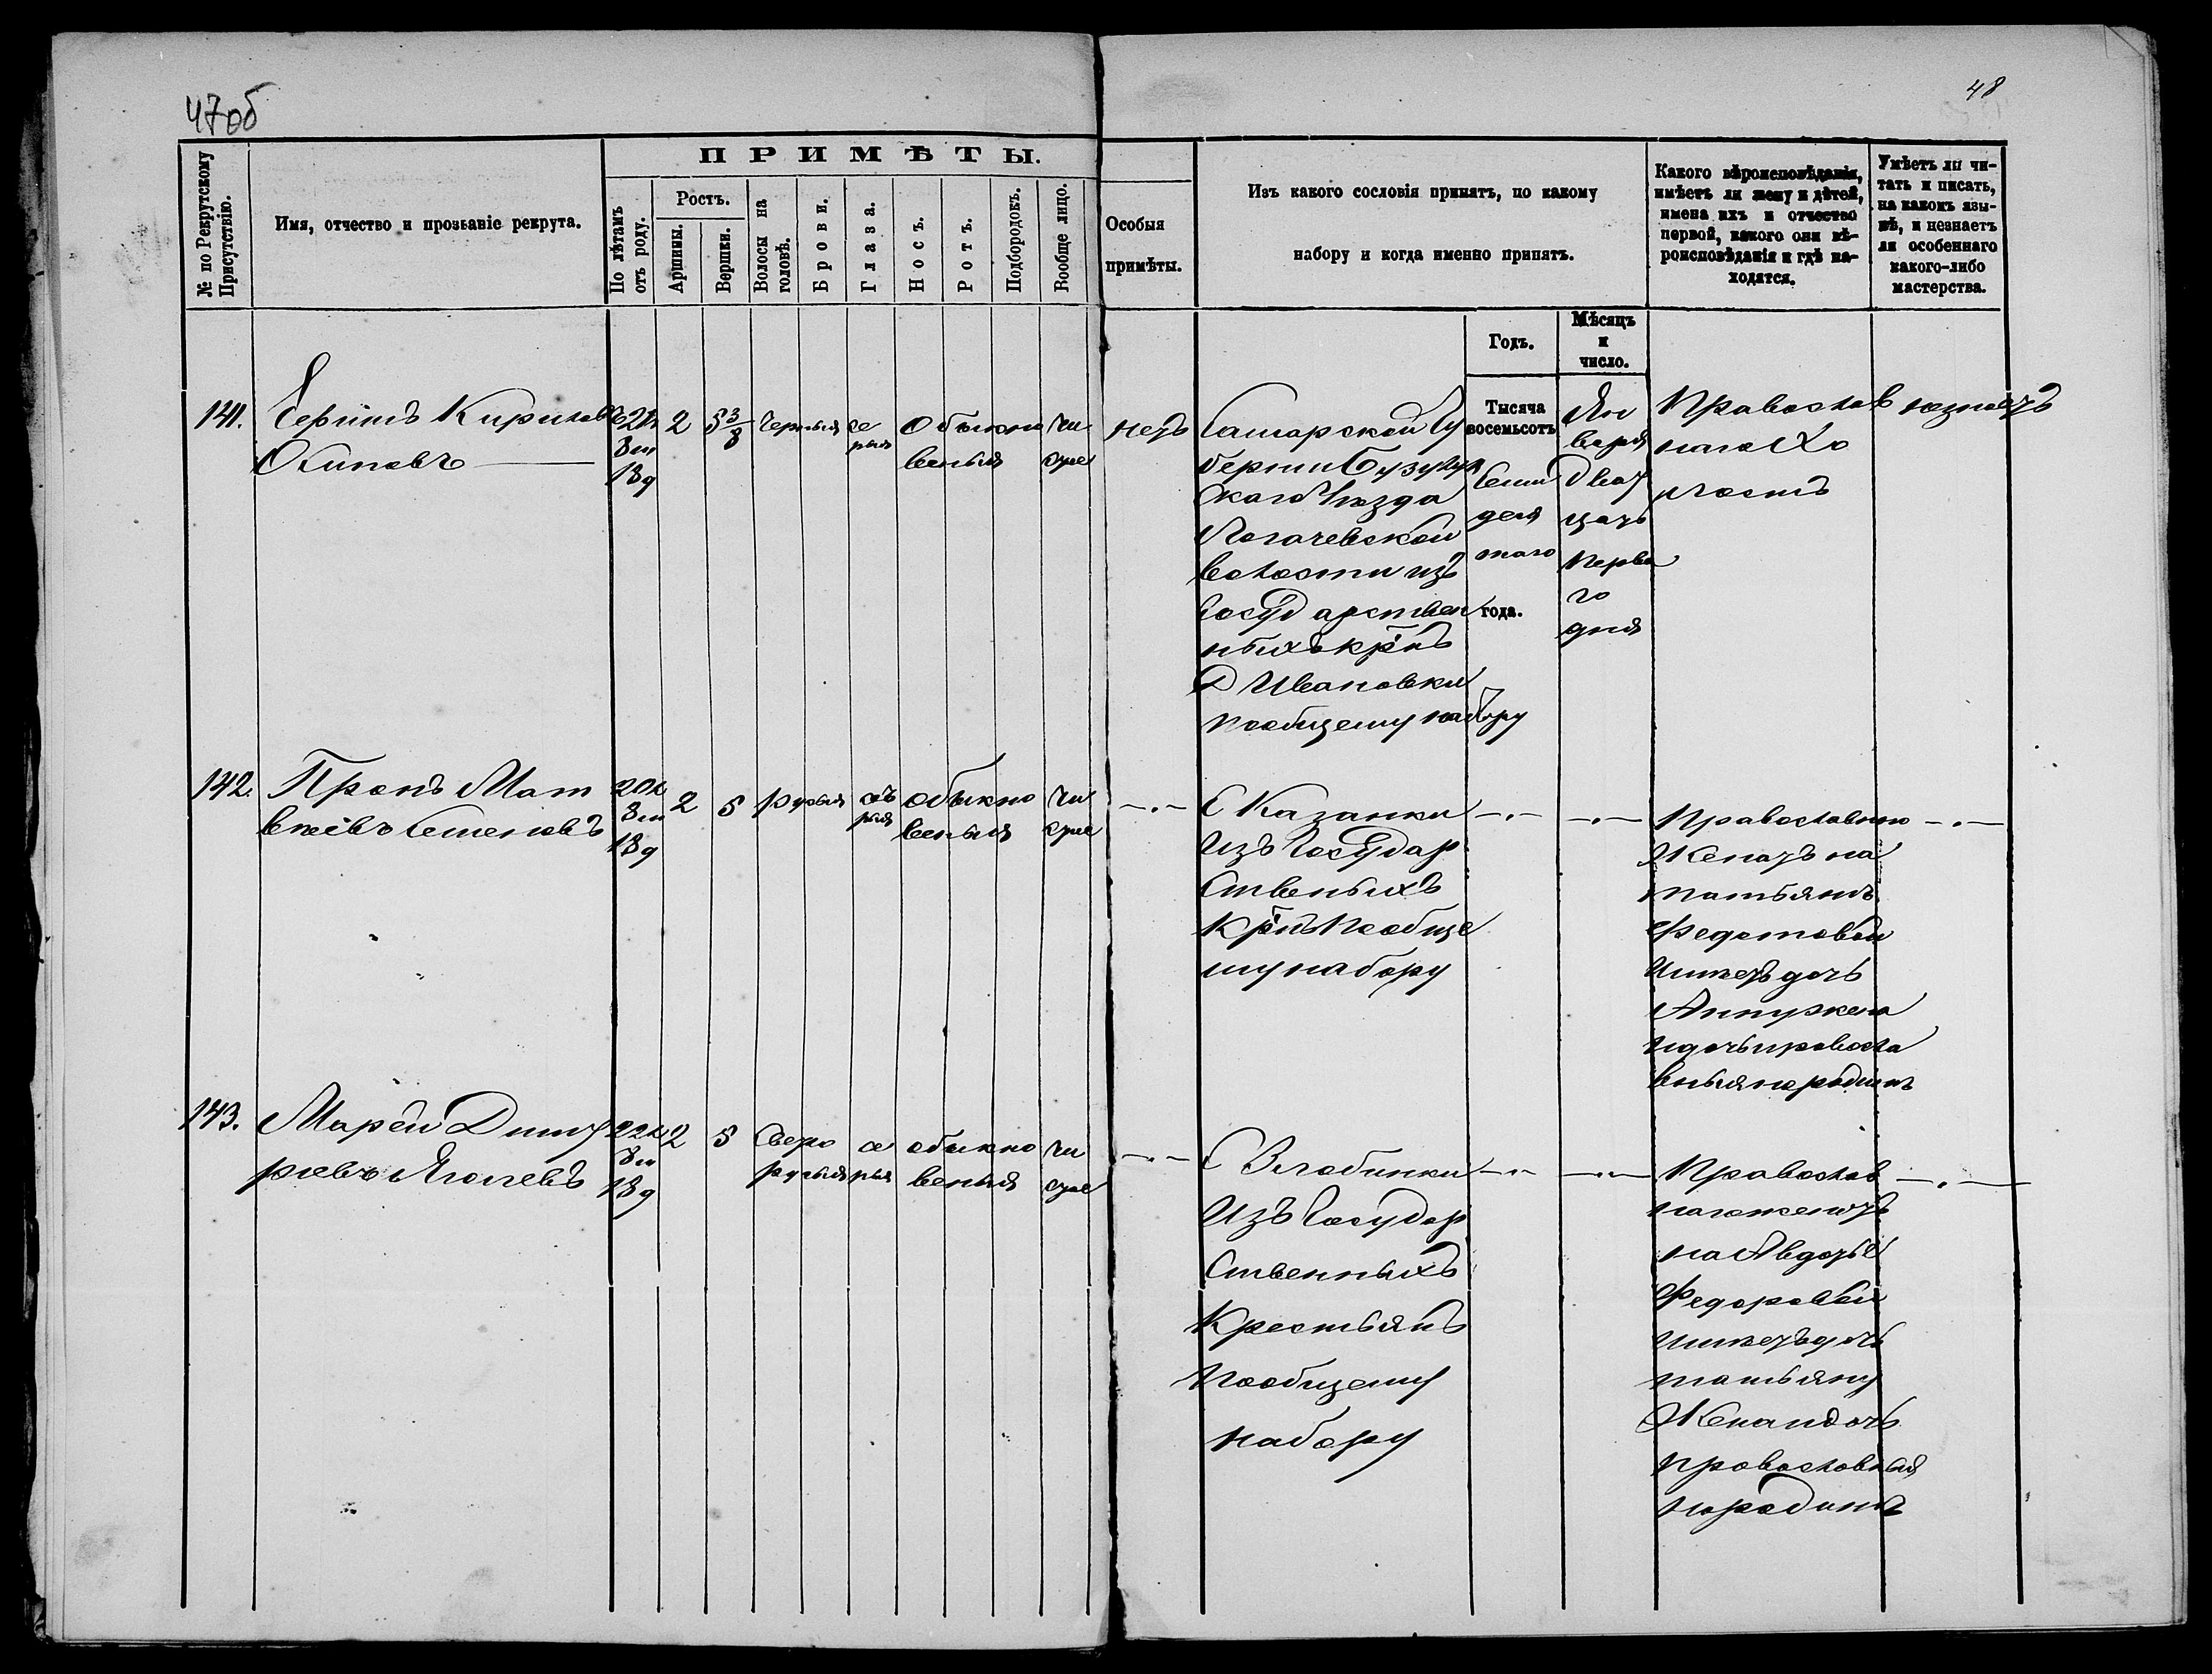 47об
48
№ по Рекрутскому Присутствію.
Имя, отчество и прозьаніе рекрута.
ПРИМѢТЫ.
По лѣтамъ отъ роду.
Ростъ.
Аршины.
Вершки.
Волосы на головѣ.
Брови.
Глаза.
Носъ.
Ротъ.
Подбородокъ.
Вообще лицо.
Особыя
примѣты.
Изъ какого сословія принятъ, по какому
набору и когда именно принятъ.
Какого вѣроисповѣданія,
имѣетъ ли жену и дѣтей,
имена ихъ и отчество
первой, какого они вѣ-
роисповѣданія и гдѣ на-
ходятся.
Умѣетъ ли чи-
тать и писать,
на какомъ язы-
кѣ, и незнаетъ
ли особеннаго
какого-либо
мастерства.
Годъ.
Мѣсяцъ
и
число.
141.
Кирилов
Осиповъ
21л
8м
18д
2
5 3/8
черныя
се
рыя
Обыкно
веныя
чи
стое
нетъ
Самарской Гу
берни Бузулук
скаго Уѣзда
Логачевской
волости изъ
Государствен
ныхъ крнъ
Д Ивановки
пообщему набору
Тысяча
восемьсотъ
семи
деся
таго
года.
Ян
варя
двад
цать
перва
го
дня
Православ
наго Хо
лостъ
незнаетъ
142.
Пронъ Мат
веевъ Семеновъ
20л
8м
18д
2
5
русыя
съ
рыя
обыкно
веныя
чи
стое
С Казанки
Изъ Государ
ственыхъ
Крнъ Пообще
му набору
Православнаго
Женатъ на
татьянъ
Федотовой
Имтетъ дочь
Анну жена
и дочь правосла
вныя на родинъ
143.
Марей Дмит
ріевъ
22л
8м
18д
2
5
Свето
русыя
се
рыя
обыкно
веныя
чи
стое
С Злобинки
Изъ Государ
ственныхъ
Крестьянъ
Пообщему
набору
Православ
наго женатъ
на Авдотье
Федоровой
имтетъ дочь
татьяну
Жена и дочь
православныя
народинъ